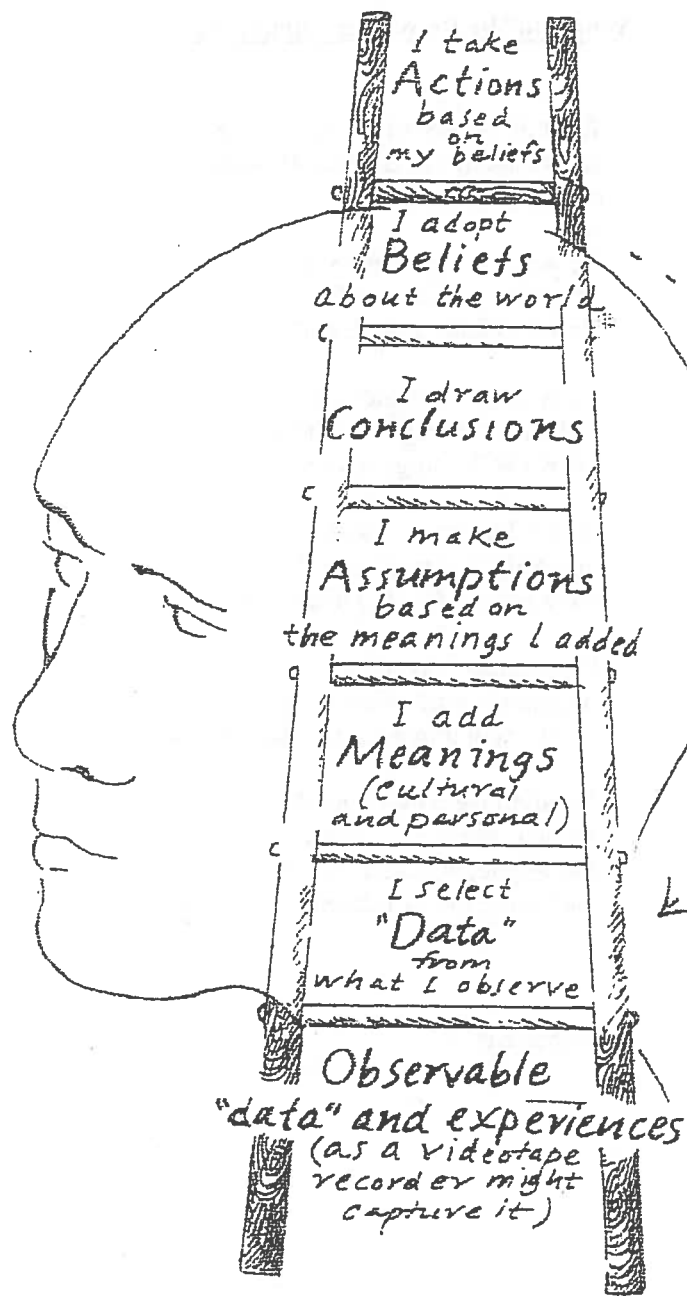 I take
Actions
based
on
my beliefs
I adopt
Beliefs
about the world
I draw
Conclusions
I make
Assumptions
based on
the meanings I added
I add
Meanings
(cultural
and personal)
I select
"Data"
from
what I observe
Observable
"data" and experiences
(as a videotape
recorder might
capture it)